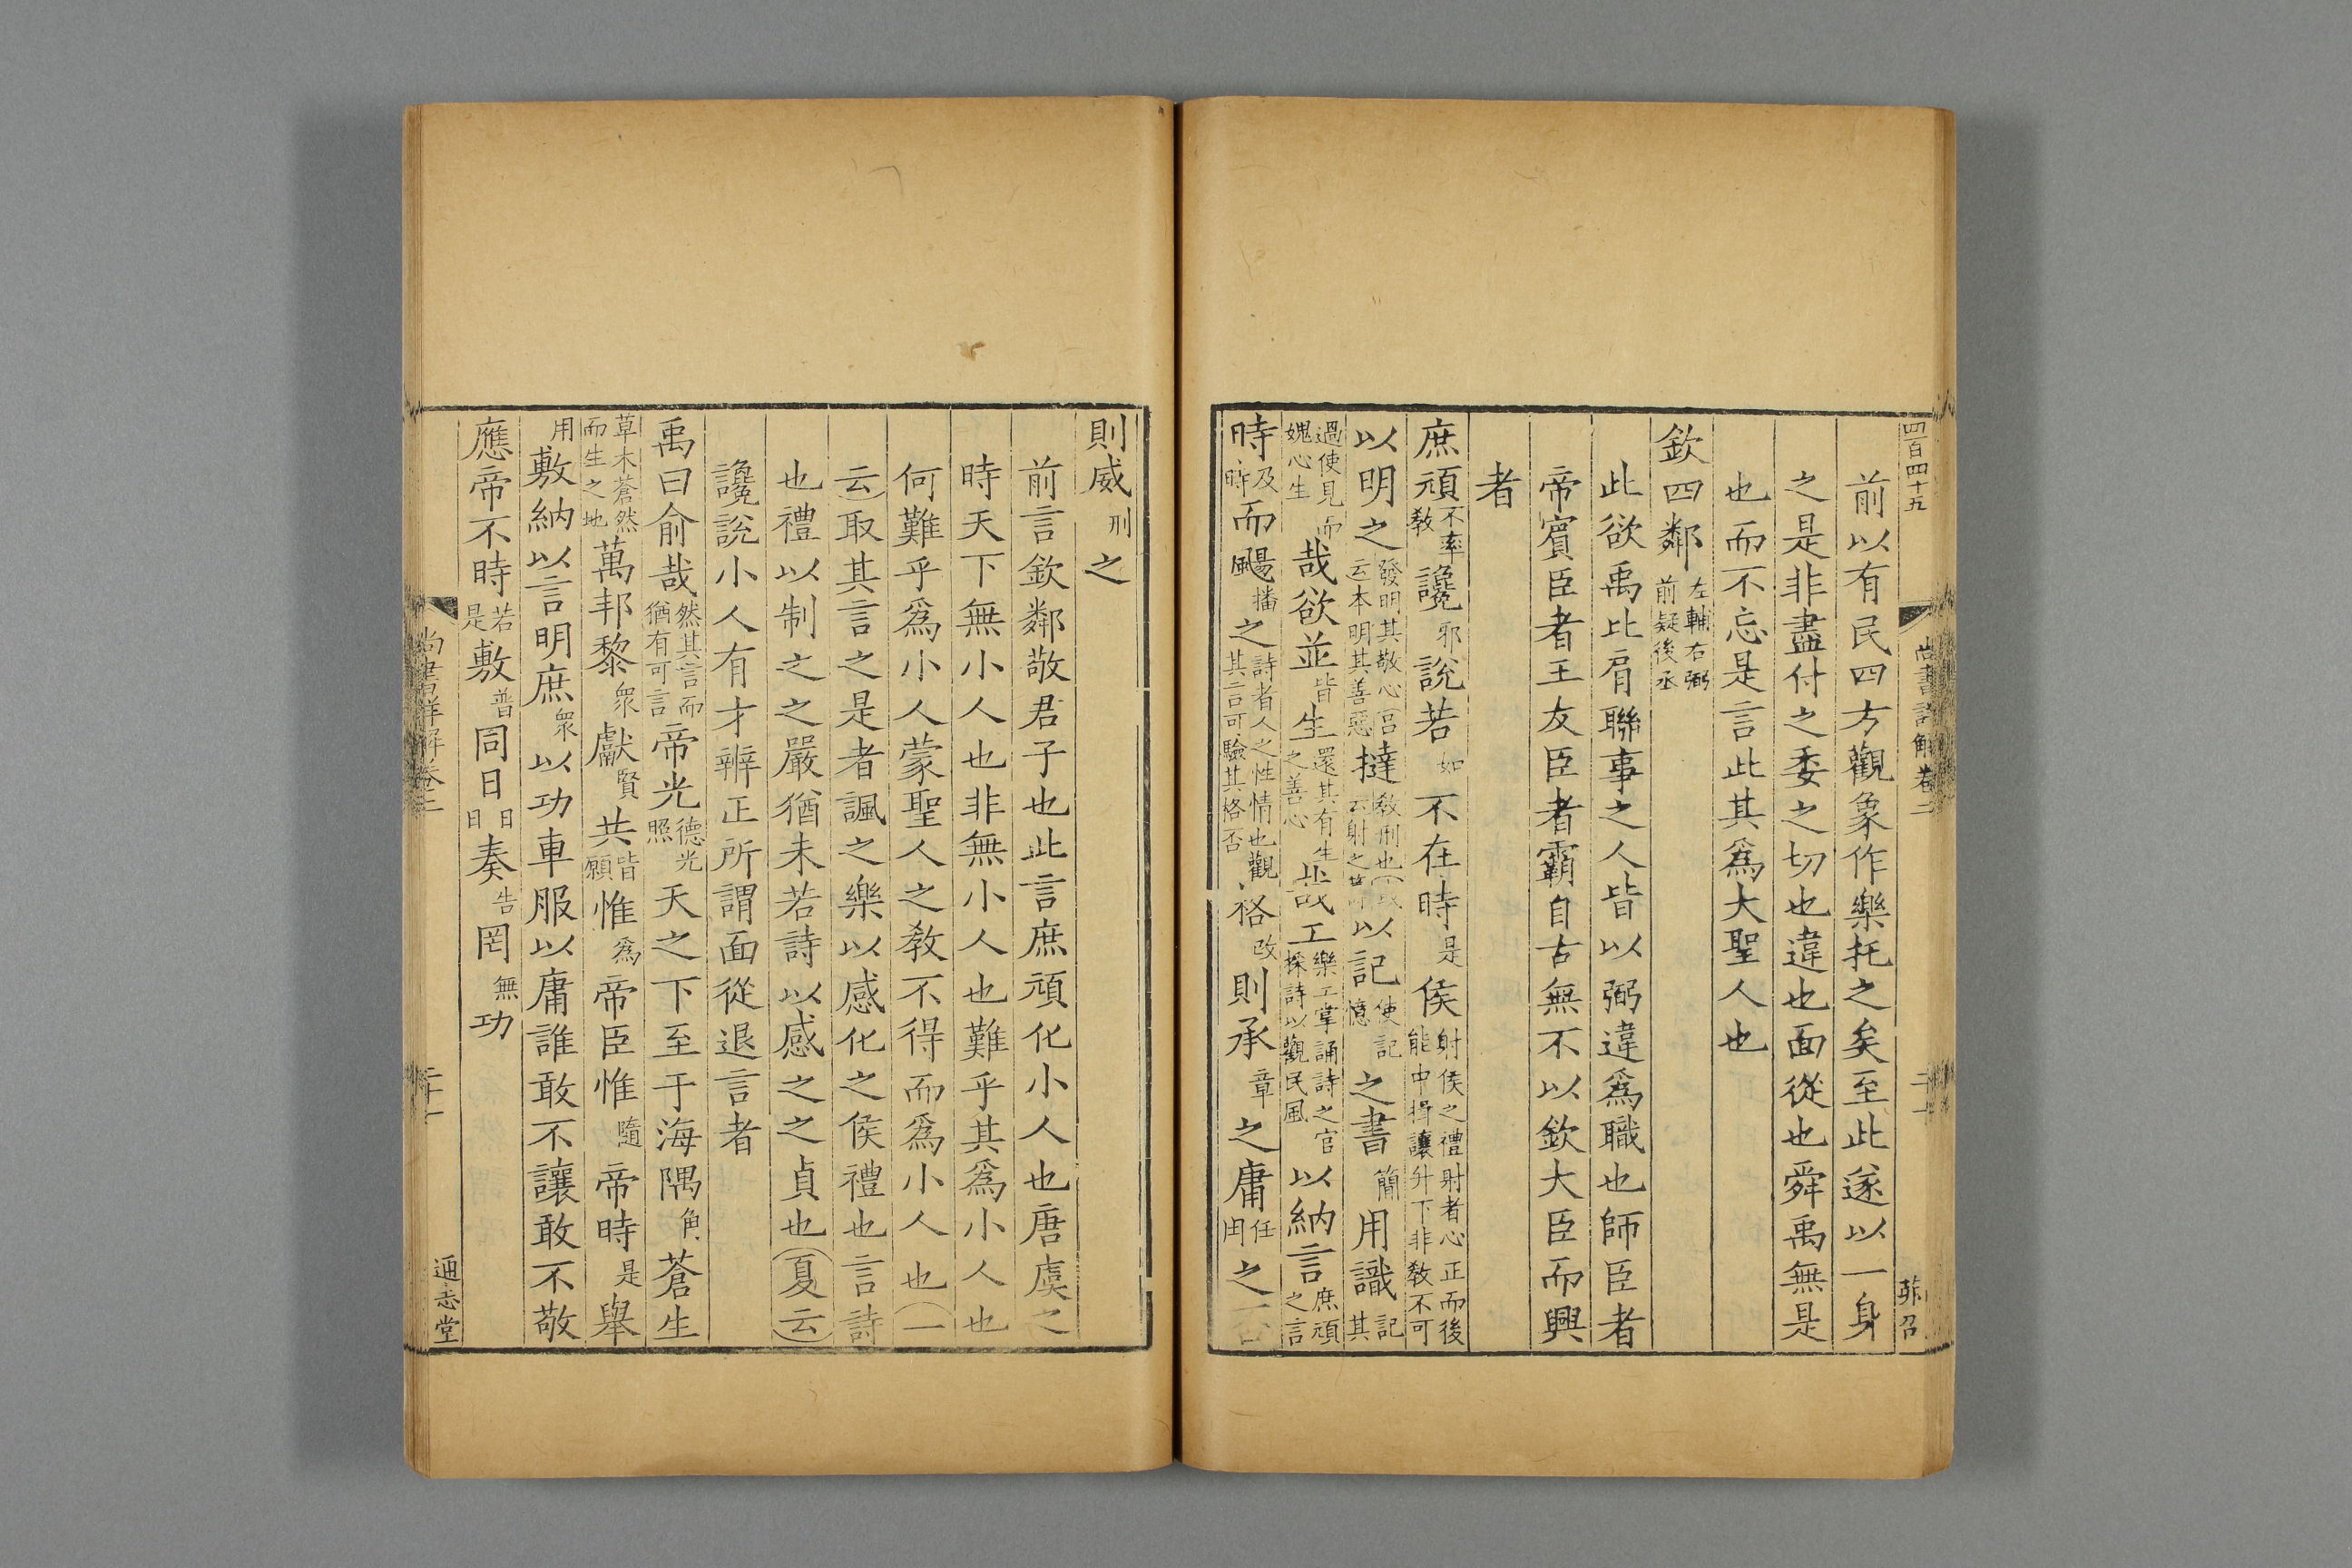 四百四十五
尚書詳解卷二
前以有民四方觀象作樂托之矣至此遂以一身
之是非盡付之委之切也違也面從也舜禹無是
也而不忘是言此其爲大聖人也
欽四鄰左輔右弼前疑後丞
此欲禹比肩聯事之人皆以弼違爲職也師臣者
帝賓臣者王友臣者霸自古無不以欽大臣而興
者
庶頑不率敎讒邪說若如不在時是侯射侯之禮射者心正而後能中揖讓升下非敎不可
以明之發明其敬心云本明其善惡撻敎刑也以記使記憶之書簡用識記其
過使見而媿心生哉欲並皆生還其有生之善心哉工樂工掌誦詩之官採詩以觀民風以納言庶頑之言
時及時而颺播之詩者人之性情也觀其言可驗其格否格改則承章之庸任用之
則威刑之
前言欽鄰敬君子也此言庶頑化小人也唐虞之
時天下無小人也非無小人也難乎其爲小人也
何難乎爲小人蒙聖人之敎不得而爲小人也一
云取其言之是者諷之樂以感化之侯禮也言詩
也禮以制之之嚴猶未若詩以感之之貞也夏云
讒說小人有才辨正所謂面從退言者
禹曰俞哉然其言而猶有可言帝光德光照天之下至于海隅角蒼生
草木蒼然而生之地萬邦黎衆獻賢共皆願惟爲帝臣惟隨帝時是舉
用敷納以言明庶衆以功車服以庸誰敢不讓敢不敬
應帝不時若是敷普同日日日奏告罔無功
尚書詳解卷二
二十一
通志堂